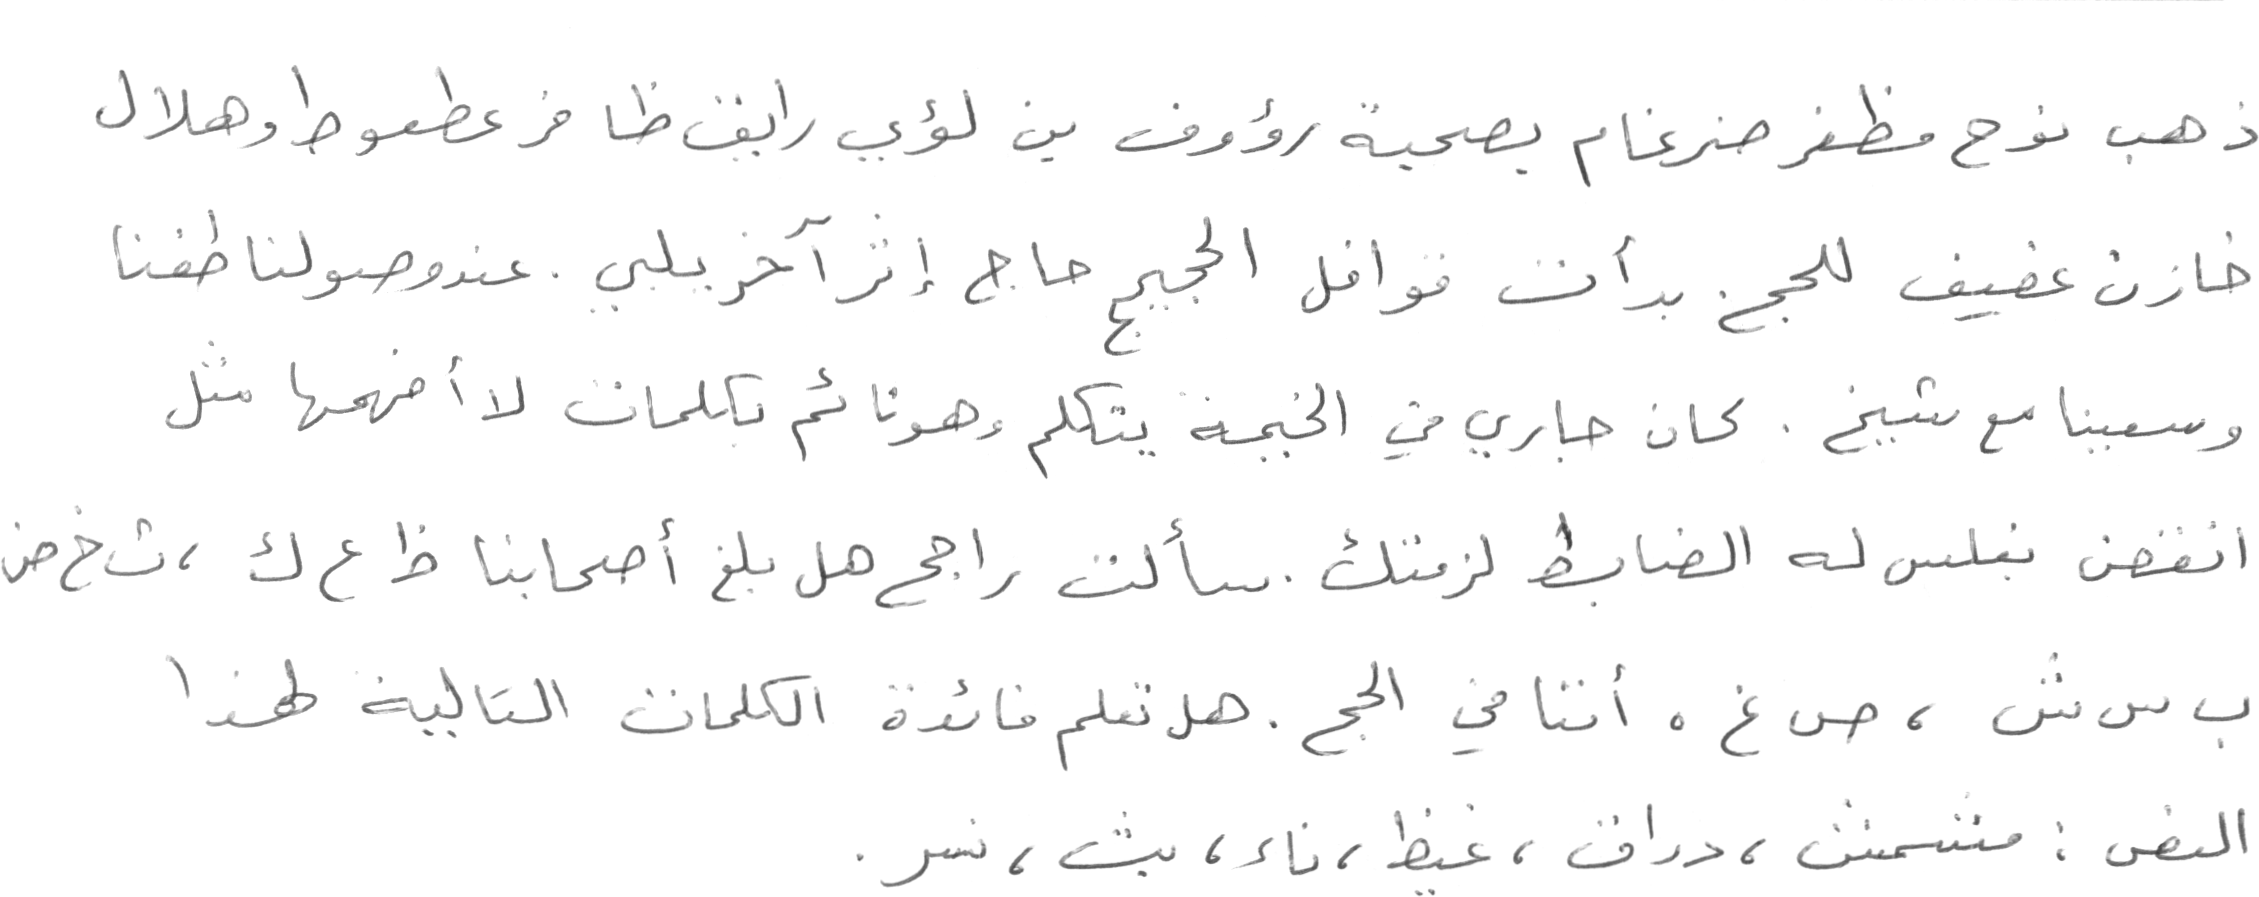 ذهب نوح مظفر ضرغام بصحبة رؤوف بن لؤي رايق ظافر عطعوط وهلال
خازن عفيف للحج. بدأت قوافل الحجيج حاج إثر آخر يلبي. عند وصولنا طفنا
وسعينا مع شيخ. كان جاري في الخيمة يتكلم وهو نائم بكلمات لا أفهمها مثل
انقض بغلس له الضابط لزمتك. سألت راجح هل بلغ أصحابنا ظ ع ك ، ث خ ض
ب س ش ، ص غ . أننا في الحج. هل تعلم فائدة الكلمات التالية لهذا
النص : مشمش ، دراق ، غيظ ، ناء ، بث ، نسر .